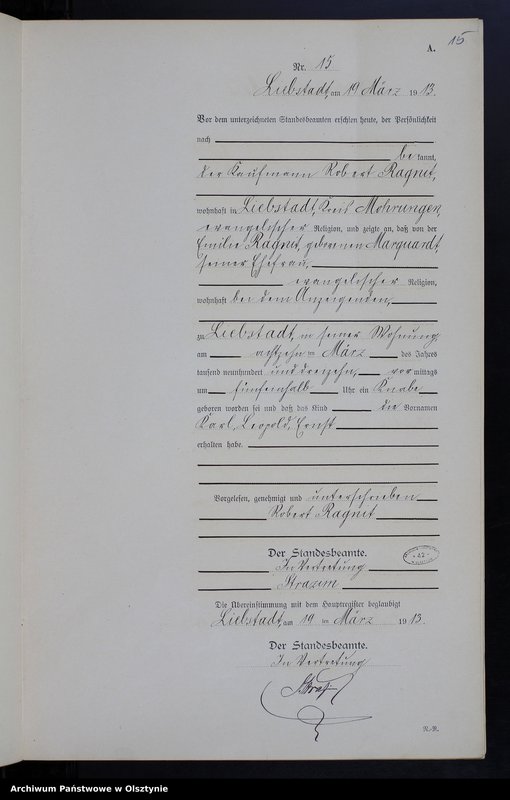 15
A.
Nr. 15
Liebstadt, am 19 März 1913.
Vor dem unterzeichneten Standesbeamten erschien heute, der Persönlichkeit
nach
bekannt,
der Kaufmann Robert Ragnit,
wohnhaft in Liebstadt, Kreis Mohrungen,
evangelischer Religion, und zeigte an, daß von der
Emilie Ragnit, geborenen Marquardt,
seiner Ehefrau,
evangelischer Religion,
wohnhaft bei dem Anzeigenden,
zu Liebstadt, in seiner Wohnung
am achtzehn ten März des Jahres
tausend neunhundert und dreizehn, vor mittags
um fünfeinhalb Uhr ein Knabe
geboren worden sei und daß das Kind die Vornamen
Karl, Leopold, Ernst
erhalten habe.
Vorgelesen, genehmigt und unterschrieben
Robert Ragnit
Der Standesbeamte.
In Vertretung
Die Übereinstimmung mit dem Hauptregister beglaubigt
Liebstadt, am 19 ten März 1913.
Der Standesbeamte.
In Vertretung
Archiwum Państwowe w Olsztynie